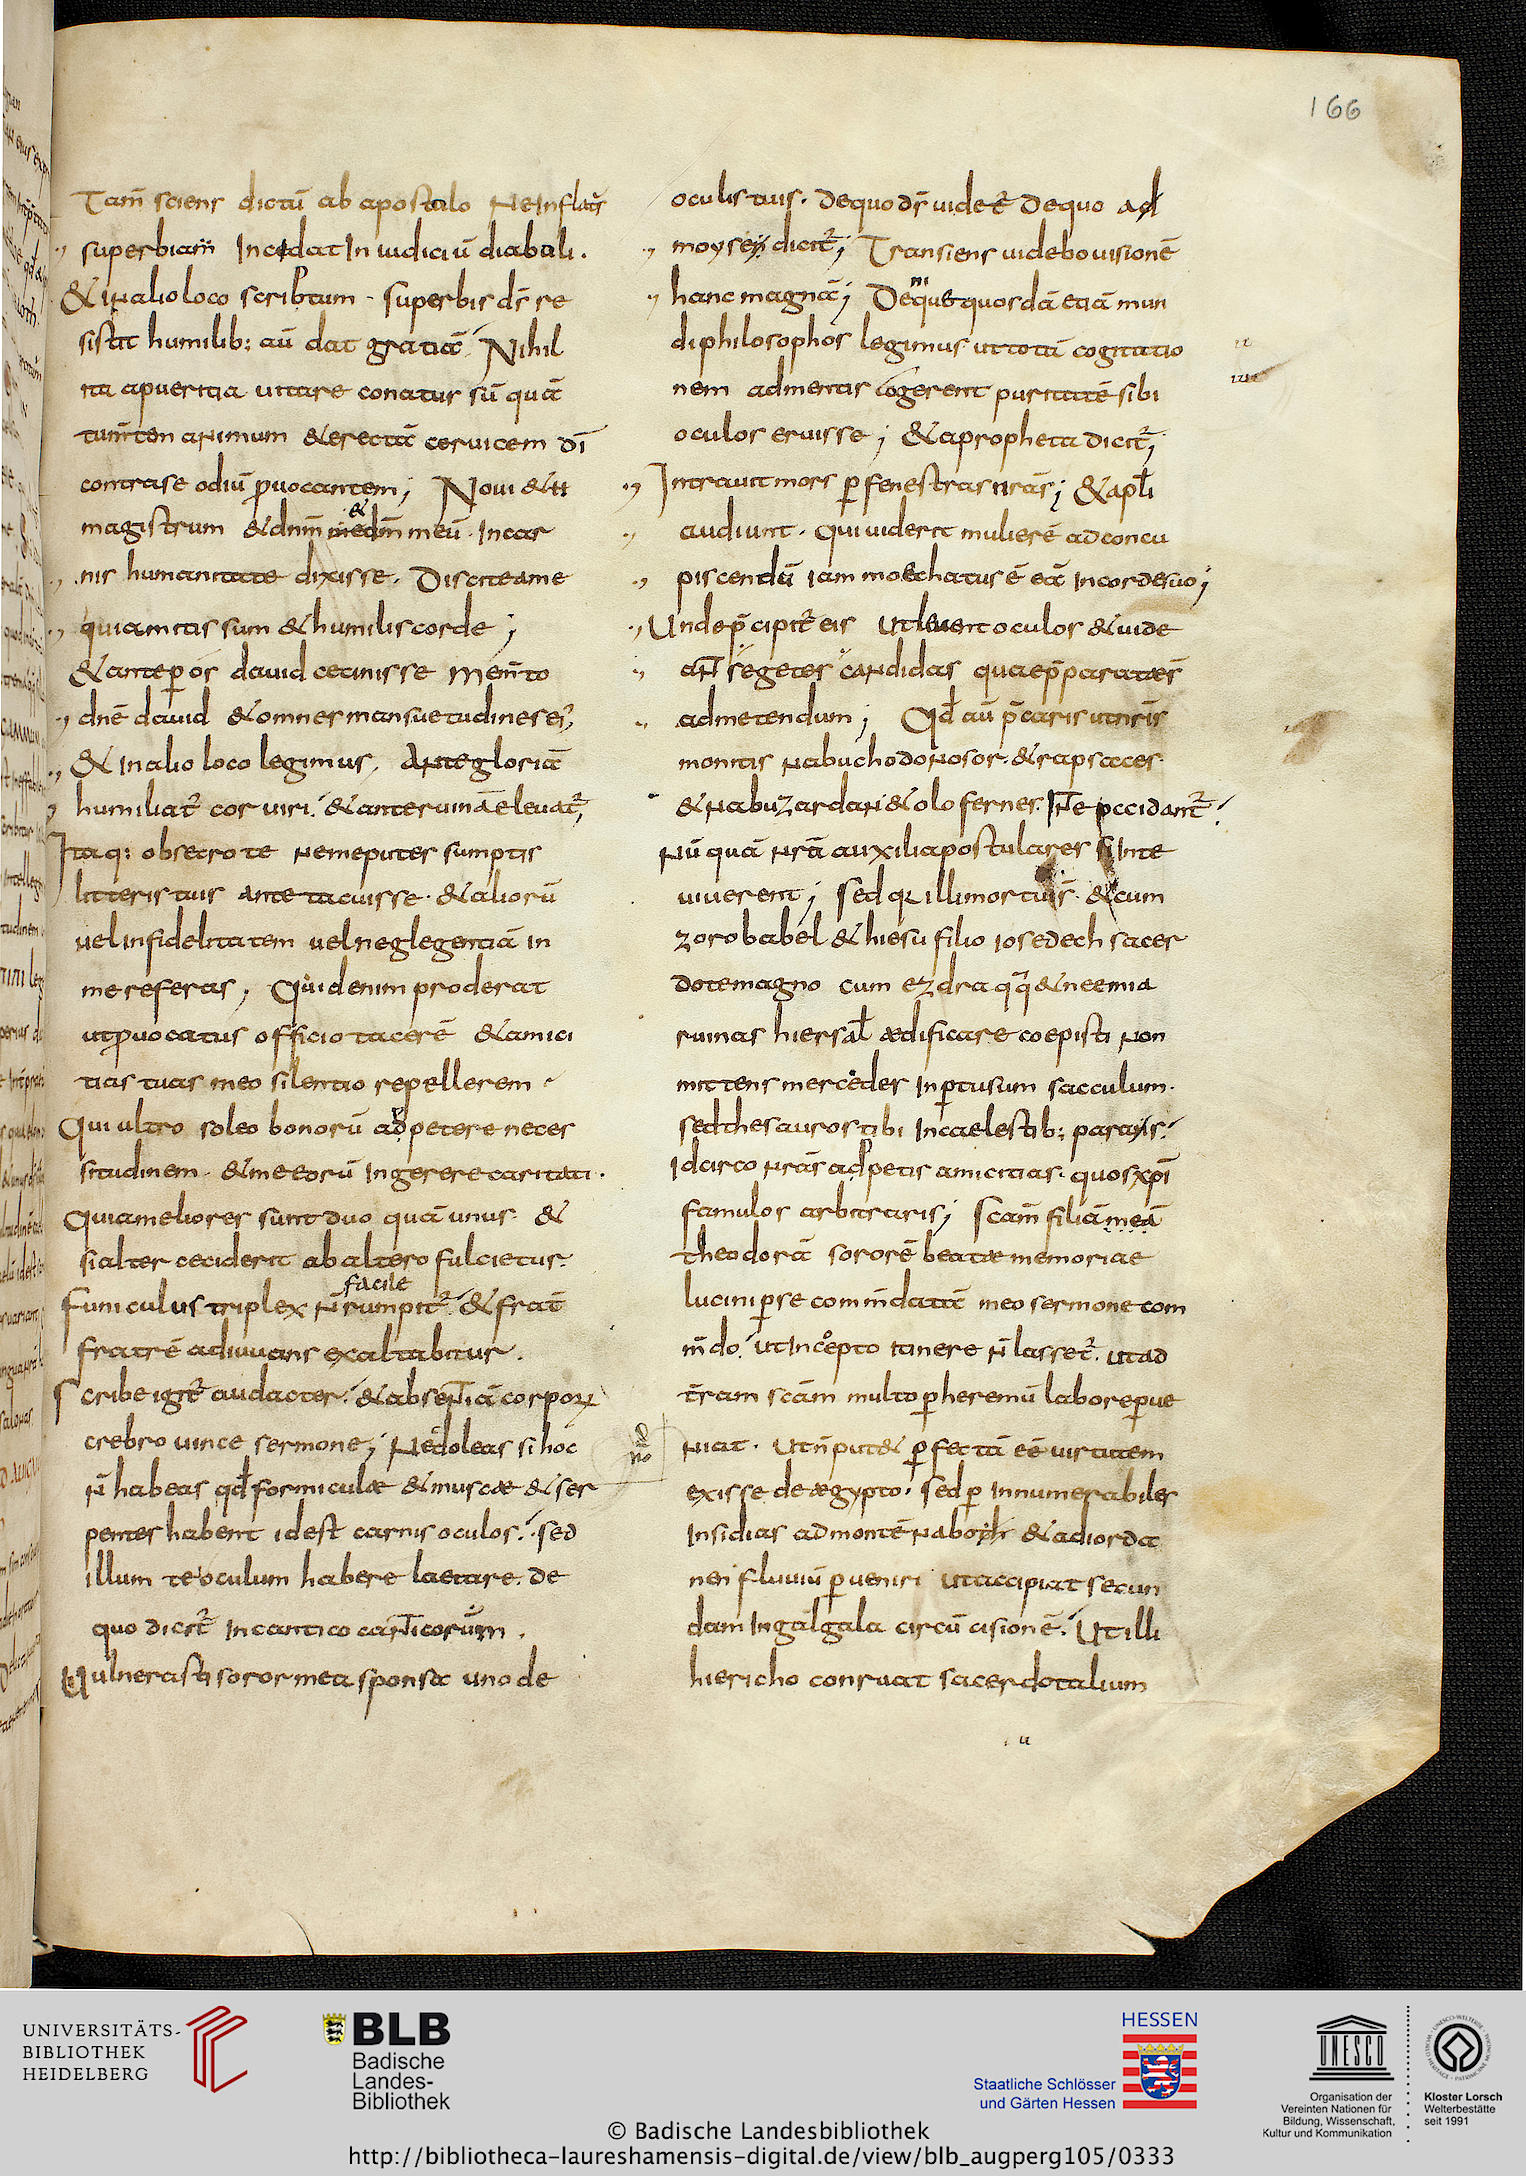 166
Tam̄ sciens dictū ab apostolo Ne Inflat᷒
superbiam̄ Incidat In iudiciū diaboli.
& in alio loco scribtum. superbis d̄s re
sistit humilib; aū dat gratiā. Nihil
ita a pueritia uitare conatus sū quā
tumten animum & erectā ceruicem dī
contra se odiū ꝓuocantem; Noui &
magistrum & dn̄m & dm̄ meū. In car
nis humanitate dixisse. Discite a me
quia mitis sum & humilis corde;
& ante ꝑ os dauid cecinisse Mem̄to
dn̄e dauid & omnes mansuetudines ei᷒,
& In alio loco legimus, Ante gloriā
humiliat᷒ cor uiri. & ante ruinā eleuat᷒,
Itaq; obsecro te ne me putes sumptis
litteris tuis ante tacuisse. & aliorū
uel infidelitatem uel neglegentiā in
me referas; Quid enim proderat
ut ꝓuocatus officio tacerē & amici
tias tuas meo silentio repellerem.
Qui ultro soleo bonorū adpetere neces
situdinem. & me eorū Ingerere caritati.
Quia meliores sunt duo quā unus. &
si alter ceciderit ab altero fulcietur.
facile
Funiculus triplex n̄ rumpit᷒. & frat̄
fratrē adiuuans exaltabitur.
Scribe igit᷒ audacter. & absentiā corporꝝ
crebro uince sermone; Ne doleas si hoc
n̄ habeas qđ formiculæ & muscæ & ser
pentes habent id est carnis oculos. sed
illum te oculum habere laetare. de
quo dicit᷒ In cantico canticorum.
Uulnerasti soror mea sponsa uno de
oculis tuis. De quo d̄s uidet᷒ De quo ad
moysen dicit᷒; Transiens uidebo uisionē
hanc magnā; Deniq; & quosdā etiā mun
di philosophos legimus ut totā cogitatio
nem ad mentis cogerent puritatē sibi
oculos eruisse; & a propheta dicit᷒;
Intrauit mors ꝑ fenestras n̄rās; & apl̄i
audiunt. Qui uiderit mulierē ad concu
piscendū iam moechatus ē eā in corde suo;
Unde p̄cipit᷒ eis ut leuent oculos & uide
ant segetes candidas quae p̄paratæ s̄
ad metendum; Qđ aū p̄caris ut n̄ris
monitis Nabuchodonosor. & rapsaces.
& Nabuzardan & olofernes. Ne occidant᷒.
Nūquā n̄rā auxilia postulares si In te
uiuerent; Sed qꝛ illi mortui s̄. & cum
zorobabel & hiesu filio iosedech sacer
dote magno cum ezdra q̄q̄ & neemia
ruinas hierusal̄ ædificare coepisti non
mittens mercedes In ꝑtusum sacculum.
sed thesauros tibi In caelestib; paras.
Idcirco n̄rās adpetis amicitias. quos xp̄i
famulos arbitraris; Sc̄am filiā meā
theodorā sororē beatæ memoriae
lucini ꝑ se com̄datā meo sermone com
m̄do. ut Incepto itinere n̄ lasset᷒. ut ad
t̄ram sc̄am multo ꝑ heremū labore ꝑue
niat. Ut n̄ put& ꝑfectā eē uirtutem
exisse de ægypto. sed ꝑ Innumerabiles
Insidias ad montē Naboth & ad iorda
nen fluuiū ꝑueniri ut accipiat secun
dam In galgala circūcisionē. Ut illi
hiericho conruat sacerdotalium
UNIVERSITÄTS-
BIBLIOTHEK
HEIDELBERG
BLB
Badische
Landes-
Bibliothek
HESSEN
Staatliche Schlösser
und Gärten Hessen
UNESCO
Organisation der
Vereinten Nationen für
Bildung, Wissenschaft,
Kultur und Kommunikation
Kloster Lorsch
Welterbestätte
seit 1991
© Badische Landesbibliothek
http://bibliotheca-laureshamensis-digital.de/view/blb_augperg105/0333